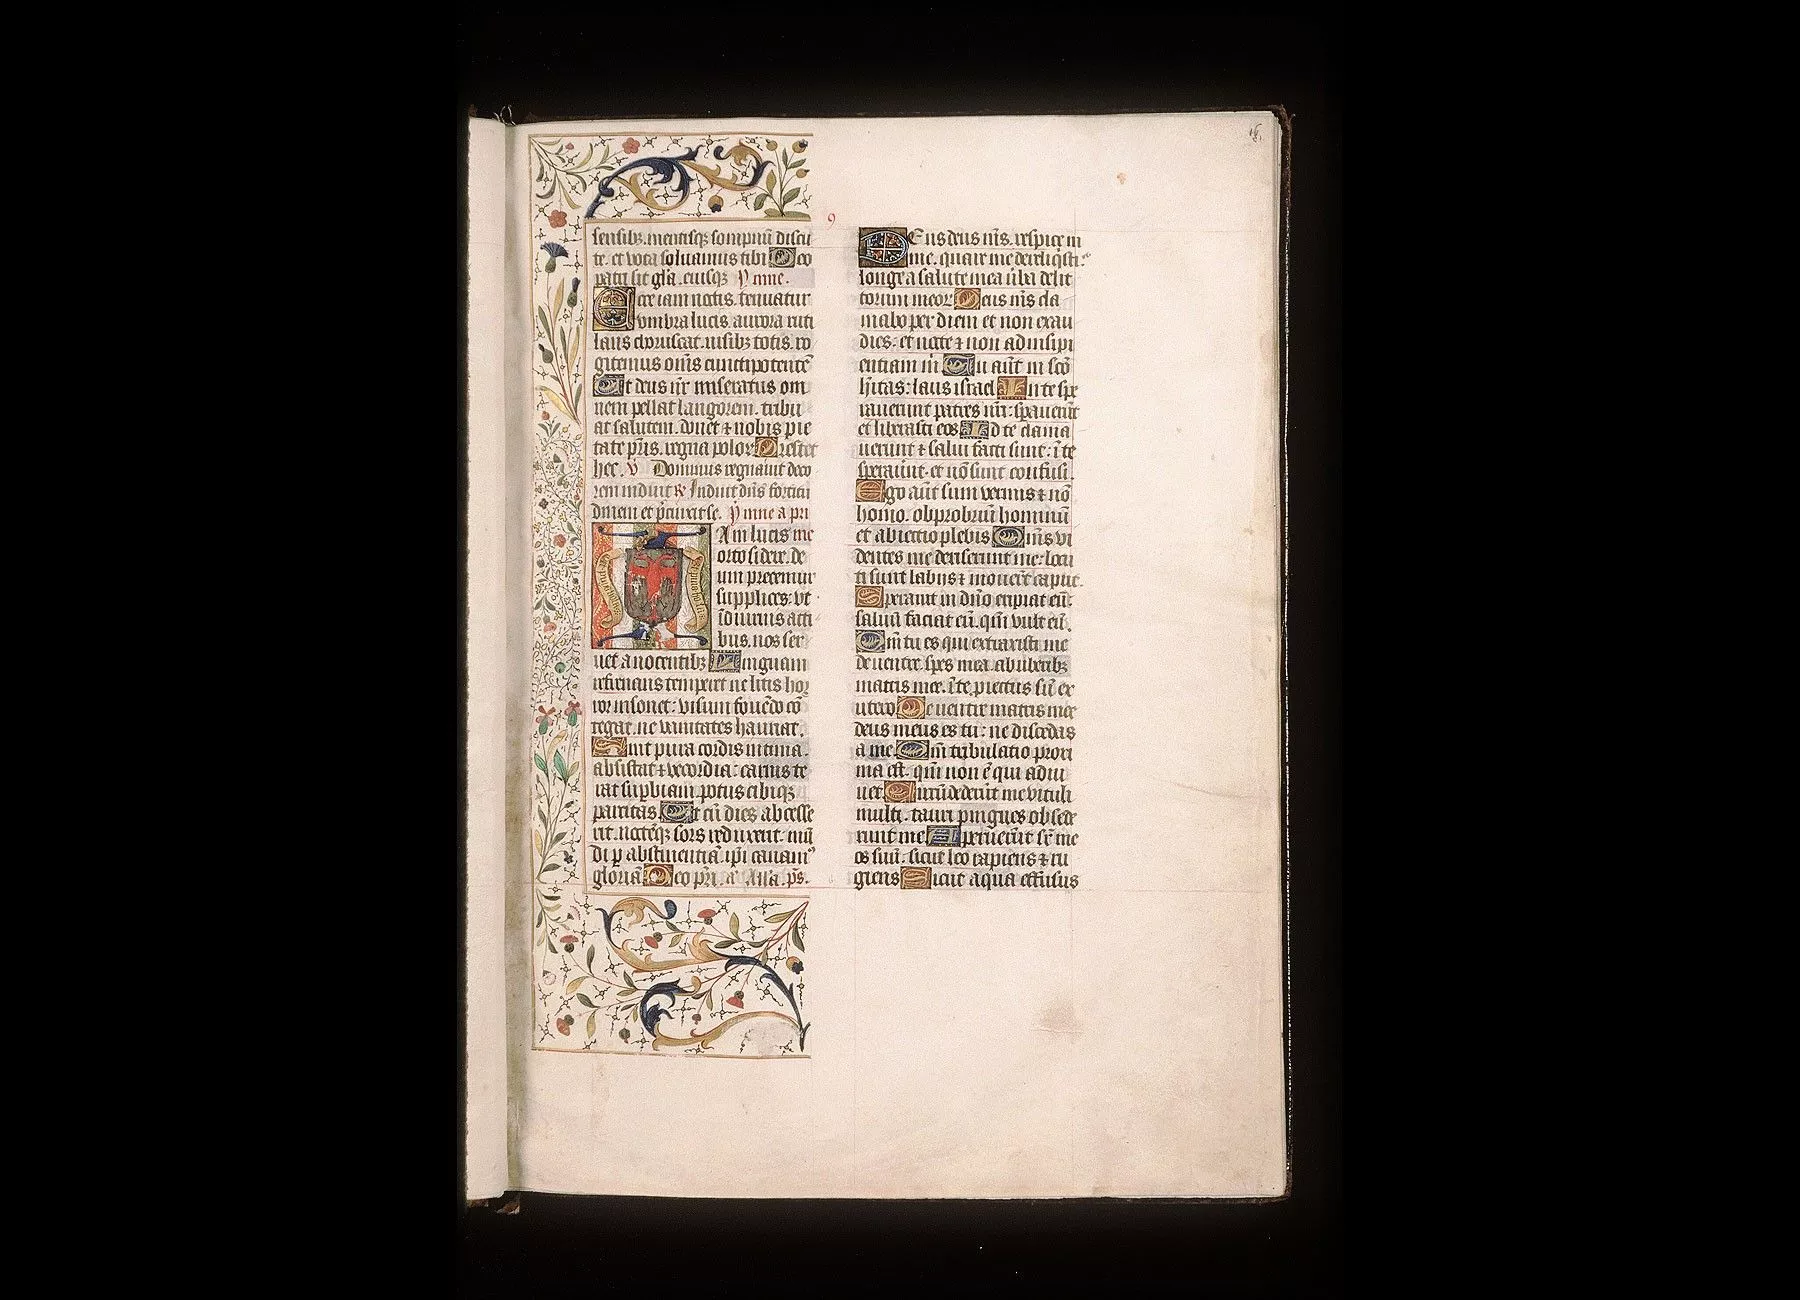 9
sensibꝫ. mentisqꝫ sompnū discu
te. et vota soluamus tibi Deo
patri sit gl̄a. eiusqꝫ Ymne.
Ecce iam noctis. tenuatur
vmbra lucis aurora ruti
lans choruscat. nisibꝫ totis. ro
gitemus om̄s cunctipotentē
Ut deus nr̄ miseratus om
nem pellat langorem. tribu
at salutem. donet ⁊ nobis pie
tate pr̄is. regna polorꝝ Prestet
hec. V Dominus regnauit deco
rem induit ℟ Induit dn̄s fortitu
dinem et p̄cinxit se. Ymne a pri
Iam lucis me
orto sidere. de
um precemur
supplices. vt
ī diurnis acti
bus. nos ser
uet a nocentibꝫ Linguam
refrenans temperet ne litis hor
ror insonet: visum fouēdo cō
tegat. ne vanitates hauriat.
Sint pura cordis intima.
absistat ⁊ vecordia: carnis te
rat supbiam. potus cibiqꝫ
parcitas. Ut cū dies abcesse
rit. noctēqꝫ sors reduxerit. mū
di p abstinentiā. ip̄i canam⁹
gloriā. Deo pr̄i. a Alla. ps.
Deus deus m̄s. respice in
me. quare me dereliqsti:
longe a salute mea v̄ba delic
torum meorꝝ Deus m̄s cla
mabo per diem et non exau
dies. et nocte ⁊ non ad insipi
entiam m̄ Tu aūt in scō
h̄itas: laus israel In te spe
rauerunt patres nr̄i: spauerūt
et liberasti eos Ad te clama
uerunt ⁊ salui facti sunt: ī te
sperauūt. et nō sunt confusi.
Ego aūt sum vermis ⁊ nō
homo. obprobriū hominū
et abiectio plebis Om̄s vi
dentes me deriserunt me: locu
ti sunt labijs ⁊ mouerūt caput.
Sperauit in dn̄o eripiat eū:
saluū faciat eū. qm̄ vult eū.
Qm̄ tu es qui extraxisti me
de ventre. spes mea ab vberibꝫ
matris mee. ī te piectus sū ex
vtero De ventre matris mee
deus meus es tu: ne discedas
a me. Qm̄ tribulatio proxi
ma est. qm̄ non ē qui adiu
uet Circūdederūt me vituli
multi. tauri pingues obsede
runt me Aperuerūt sr̄ me
os suū. sicut leo rapiens ⁊ ru
giens Sicut aqua effusus